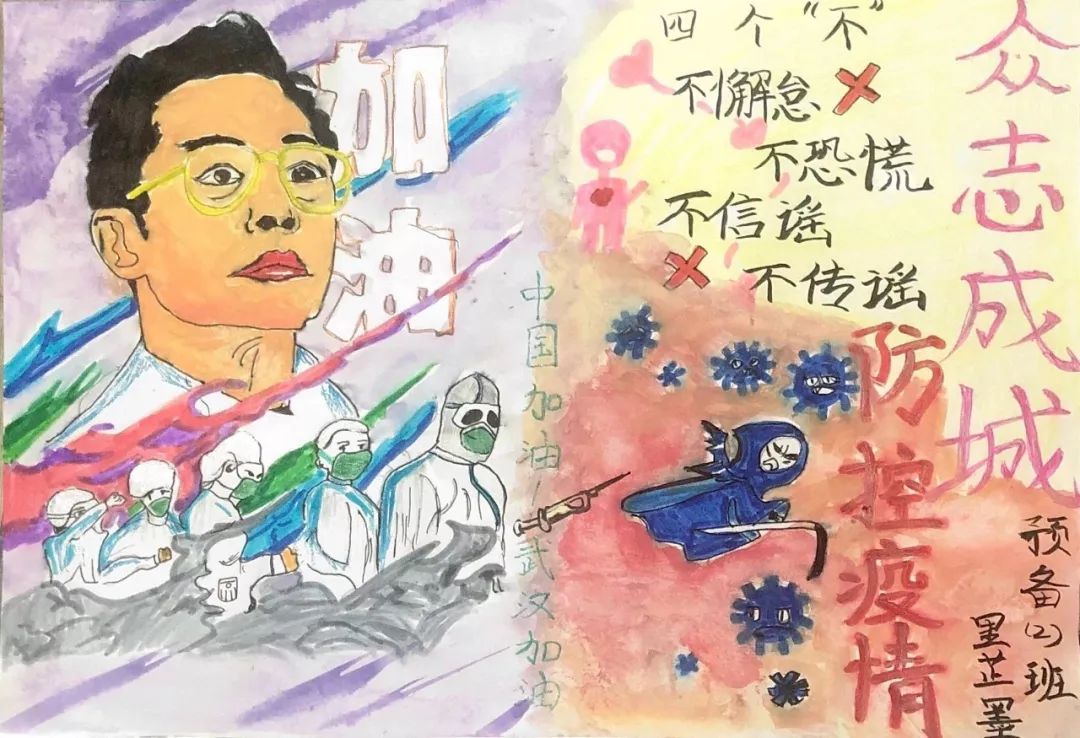 加油
中国加油！武汉加油
四个“不”
不懈怠
不恐慌
不信谣
不传谣
众志成城
防控疫情
预备(2)班
里芷墨